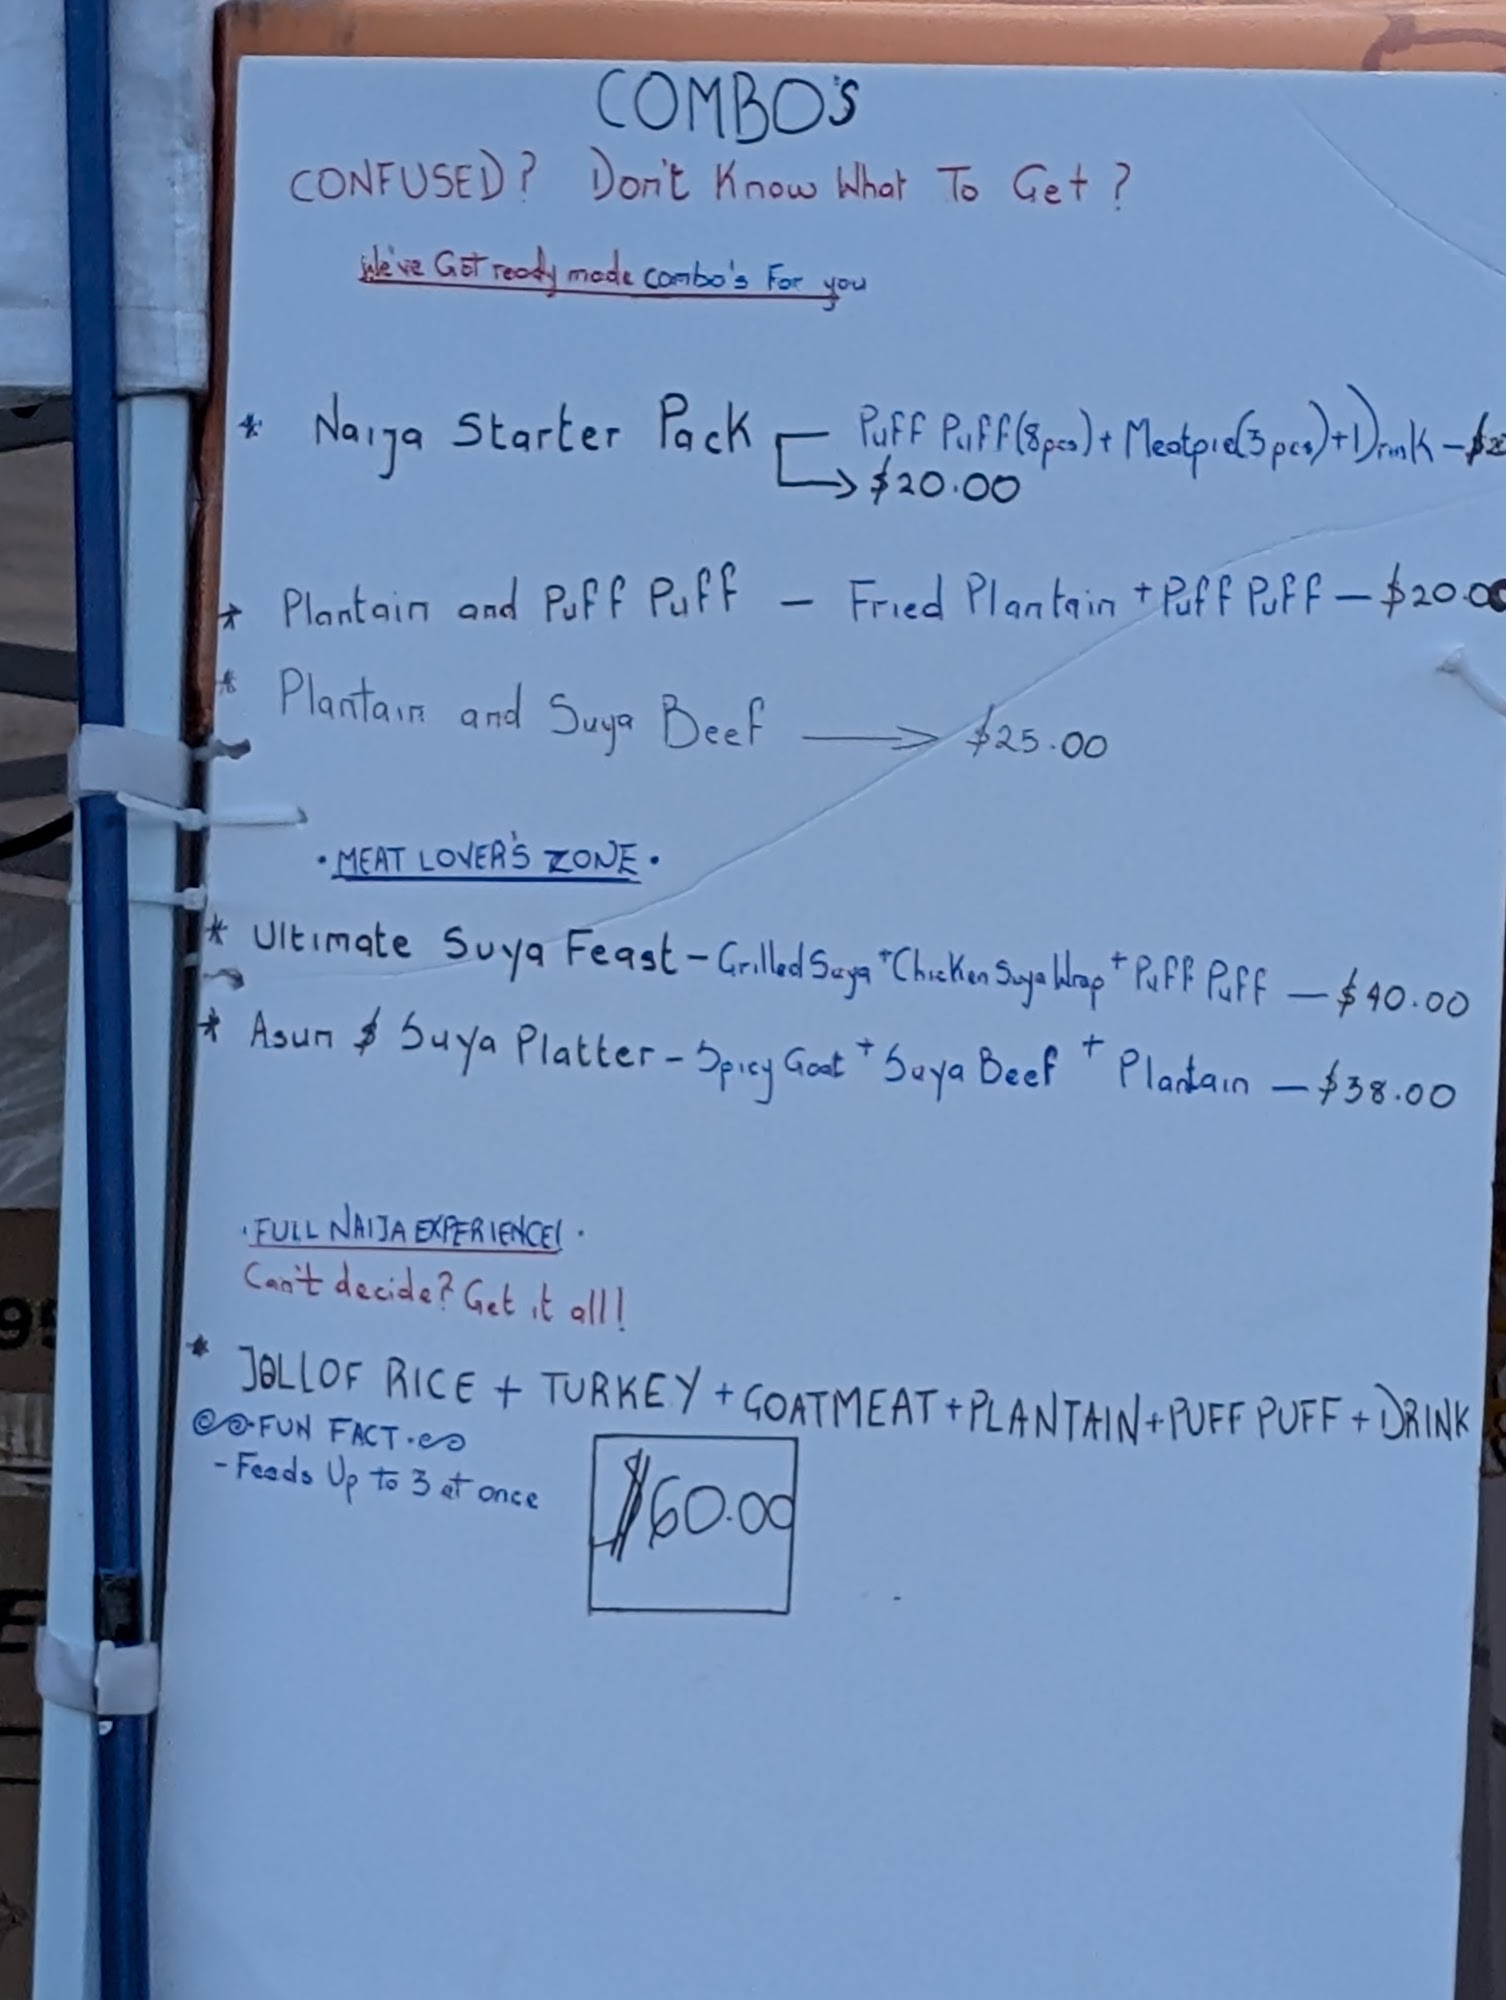 COMBO'S
CONFUSED? Don't Know What To Get?
We've Got ready made combo's For you
* Naija Starter Pack PUFF PUFF(8pcs)+Meatpie(3pcs)+Drink-$20
$20.00
* Plantain and PUFF PUFF - Fried Plantain + PUFF PUFF - $20.00
* Plantain and Suya Beef → $25.00
• MEAT LOVER'S ZONE •
* Ultimate Suya Feast - Grilled Suya + Chicken Suya Wrap + PUFF PUFF - $40.00
* Asun $ Suya Platter - Spicy Goat + Suya Beef + Plantain - $38.00
• FULL NAIJA EXPERIENCE! •
Can't decide? Get it all!
* JOLLOF RICE + TURKEY + GOATMEAT + PLANTAIN + PUFF PUFF + DRINK
FUN FACT
- Feeds Up to 3 at once
$60.00